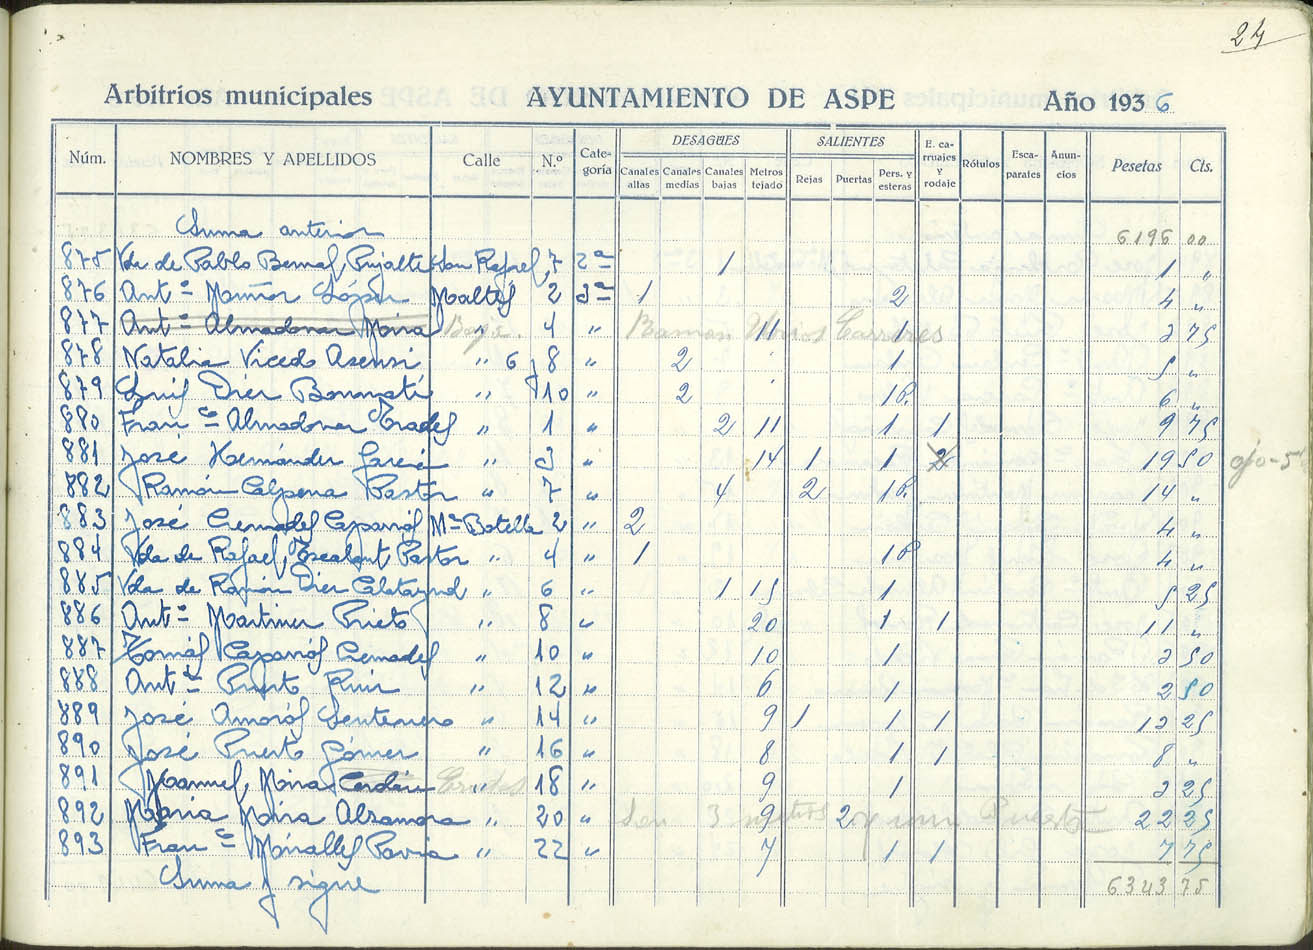 24
Arbitrios municipales AYUNTAMIENTO DE ASPE Año 1936
Núm. NOMBRES Y APELLIDOS Calle N.º Cate-goría DESAGÜES Canales altas Canales medias Canales bajas Metros tejado SALIENTES Rejas Puertas Pers. y esteras E. ca-rruajes y rodaje Rótulos Esca-parates Anun-cios Pesetas Cts.
Suma anterior 6196 00
875 Vda de Pablo Bernal, Pujalte San Rafael, 7 2ª 1 1 "
876 Antº López Maltés 2 3ª 1 2 4 "
877 Antº Almodovar Mira Baja. " 4 " Ramón Carreres 11 1 3 75
878 Natalia Vicedo Asensi " 6 y 8 " 2 1 5 "
879 Luis Díez " 10 " 2 1 P. 6 "
880 Franco Almodovar Prades " 1 " 2 11 1 1 9 75
881 José Hernández García " 3 " 14 1 1 2 19 50
882 Ramón Calpena Pastor " 7 " 4 2 1 P. 14 "
883 José Cremades Caparrós Mª Botella 2 " 2 4 "
884 Vda de Rafael, Escolant Pastor " 4 " 1 1 P 4 "
885 Vda de Ramón Díez Calatayud " 6 " 1 15 1 5 25
886 Antº Martinez Prieto " 8 " 20 1 1 11 "
887 Tomás Caparrós Cremades " 10 " 10 1 3 50
888 Antº Puerto Ruiz " 12 " 6 1 2 50
889 José Amorós Sentenero " 14 " 9 1 1 1 13 25
890 José Puerto Gómez " 16 " 8 1 1 8 "
891 Manuel, Mira Cerdán " 18 " 9 1 3 25
892 María Mira Alzamora " 20 " Son 3 metros 9 2 y un Puesto 22 25
893 Franco Miralles Pavia " 22 " 7 1 1 7 75
Suma y sigue 6343 75